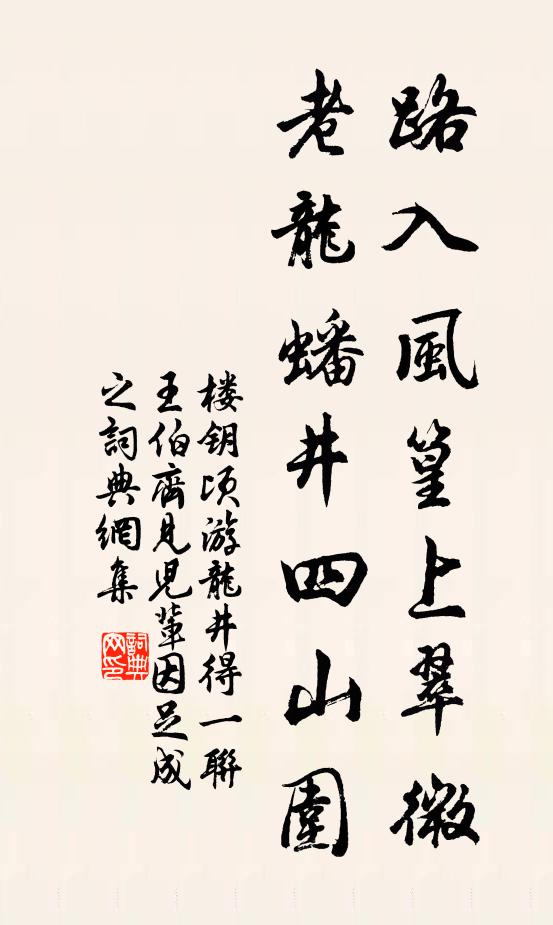 路入風篁上翠微
老龍蟠井四山圍
楼钥顷游龍井得一聯
王伯齊見児輩因足成
之詞典網集
詞典网印